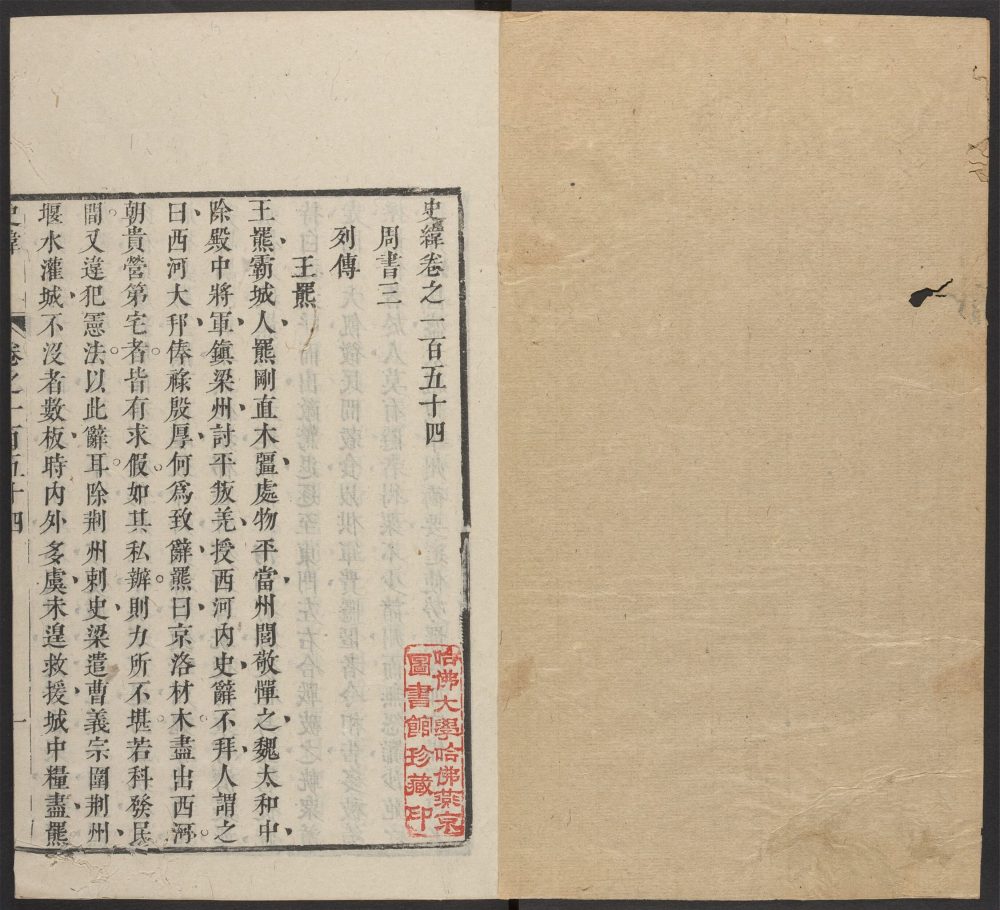 史緯卷之一百五十四
周書三
列傳
王羆
王羆霸城人羆剛直木彊處物平當州閭敬憚之魏太和中
除殿中將軍鎮梁州討平叛羌授西河內史辭不拜人謂之
曰西河大邦俸祿殷厚何爲致辭羆曰京洛材木盡出西河
朝貴營第宅者皆有求假如其私辦則力所不堪若科發民
間又違犯憲法以此辭耳除荆州刺史梁遣曹義宗圍荆州
堰水灌城不沒者數板時內外多虞未遑救援城中糧盡羆
史緯
卷之一百五十四
一
哈佛大學哈佛燕京
圖書館珍藏印